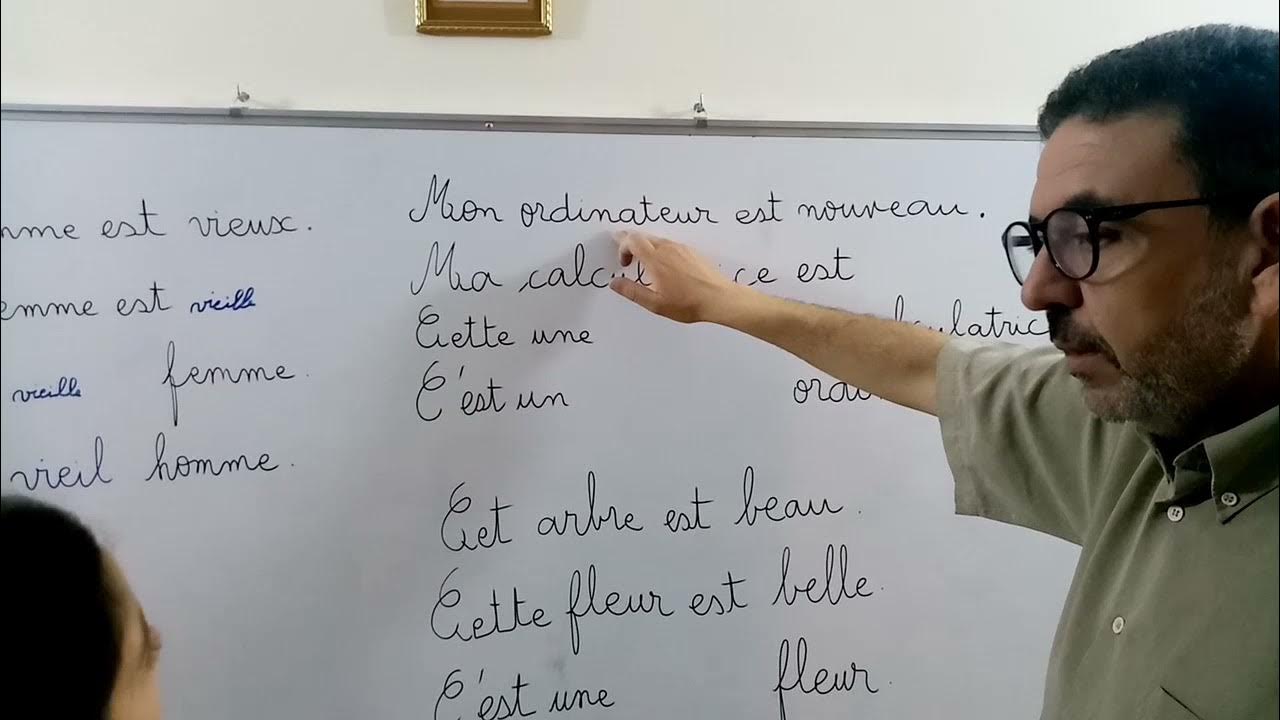 est vieux.
est vieille
vieille femme.
vieil homme.
Mon ordinateur est nouveau.
Ma est
Cette une
C'est un
Cet arbre est beau.
Cette fleur est belle.
C'est une fleur.